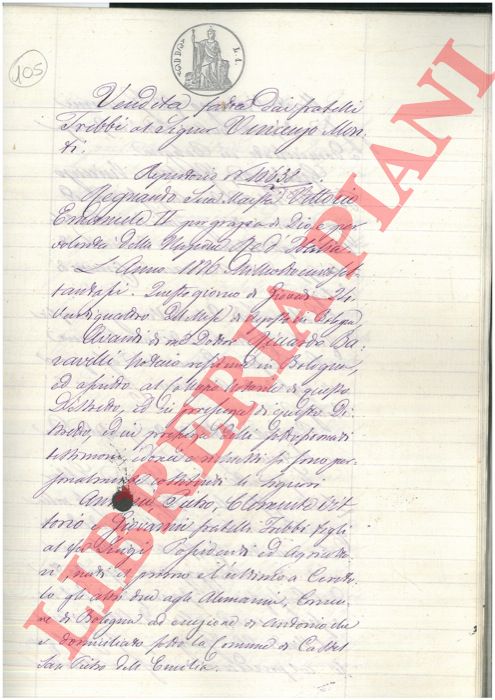 105
L. 1.
Vendita fatta dai fratelli
Trebbi al Signor Vincenzo Mon-
ti.
Repertorio N. 10638.
Regnando Sua Maestà Vittorio
Emanuele II per grazia di Dio e per
volontà della Nazione Re d'Italia.
L'Anno 1876 Milleottocentoset
tantasei. Questo giorno di Giovedì 24
Ventiquattro del Mese di Agosto in Bologna
Avanti di me Dottor Ba-
ravelli Notaio residente in Bologna,
ed ascritto al Collegio Notarile di questo
Distretto, ed in presenza di questo Di-
stretto, ed in presenza delli sottofirmati
testimoni, idonei a me noti si sono per-
sonalmente costituiti li Signori
Antonio, Pietro, Clemente, Vit-
torio e Giovanni fratelli Trebbi figli
al fu Luigi, Possidenti ed Agricolto-
ri, nati il primo e l'ultimo a
gli altri due agli Alemanni, Comu-
ne di Bologna ad eccezione di Antonio che
è domiciliato sotto la Comune di Castel
San Pietro dell'Emilia.
LIBRERIA PIANI